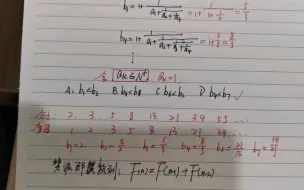 b₃=1+1/(a₁+1/(a₂+1/a₃))=1+1/(1+1/2)=5/3
b₄=1+1/(a₁+1/(a₂+1/(a₃+1/a₄)))=1+3/5=8/5
令 aₖ∈N* aₖ=1.
A. b₁<b₅ B. b₃<b₈ C. b₆<b₂ D. b₄<b₇ ✓
2, 3, 5, 8, 13, 21, 34, 55 …
1, 2, 3, 5, 8, 13, 21, 34 …
b₁=2 b₂=3/2 b₃=5/3 b₄=8/5 b₆=21/13 b₇=34/21
斐波那契数列: F(n)=F(n-1)+F(n-2)